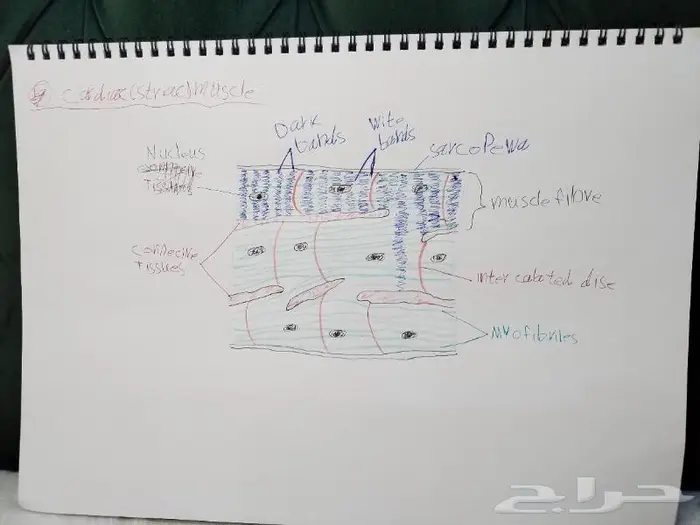 Cardiac (striac) muscle
Dark
bands
Wite
bands
sarcolema
Nucleus
Tissues
muscle fibre
connective
Tissues
inter calated disc
Myofibriles
حراج